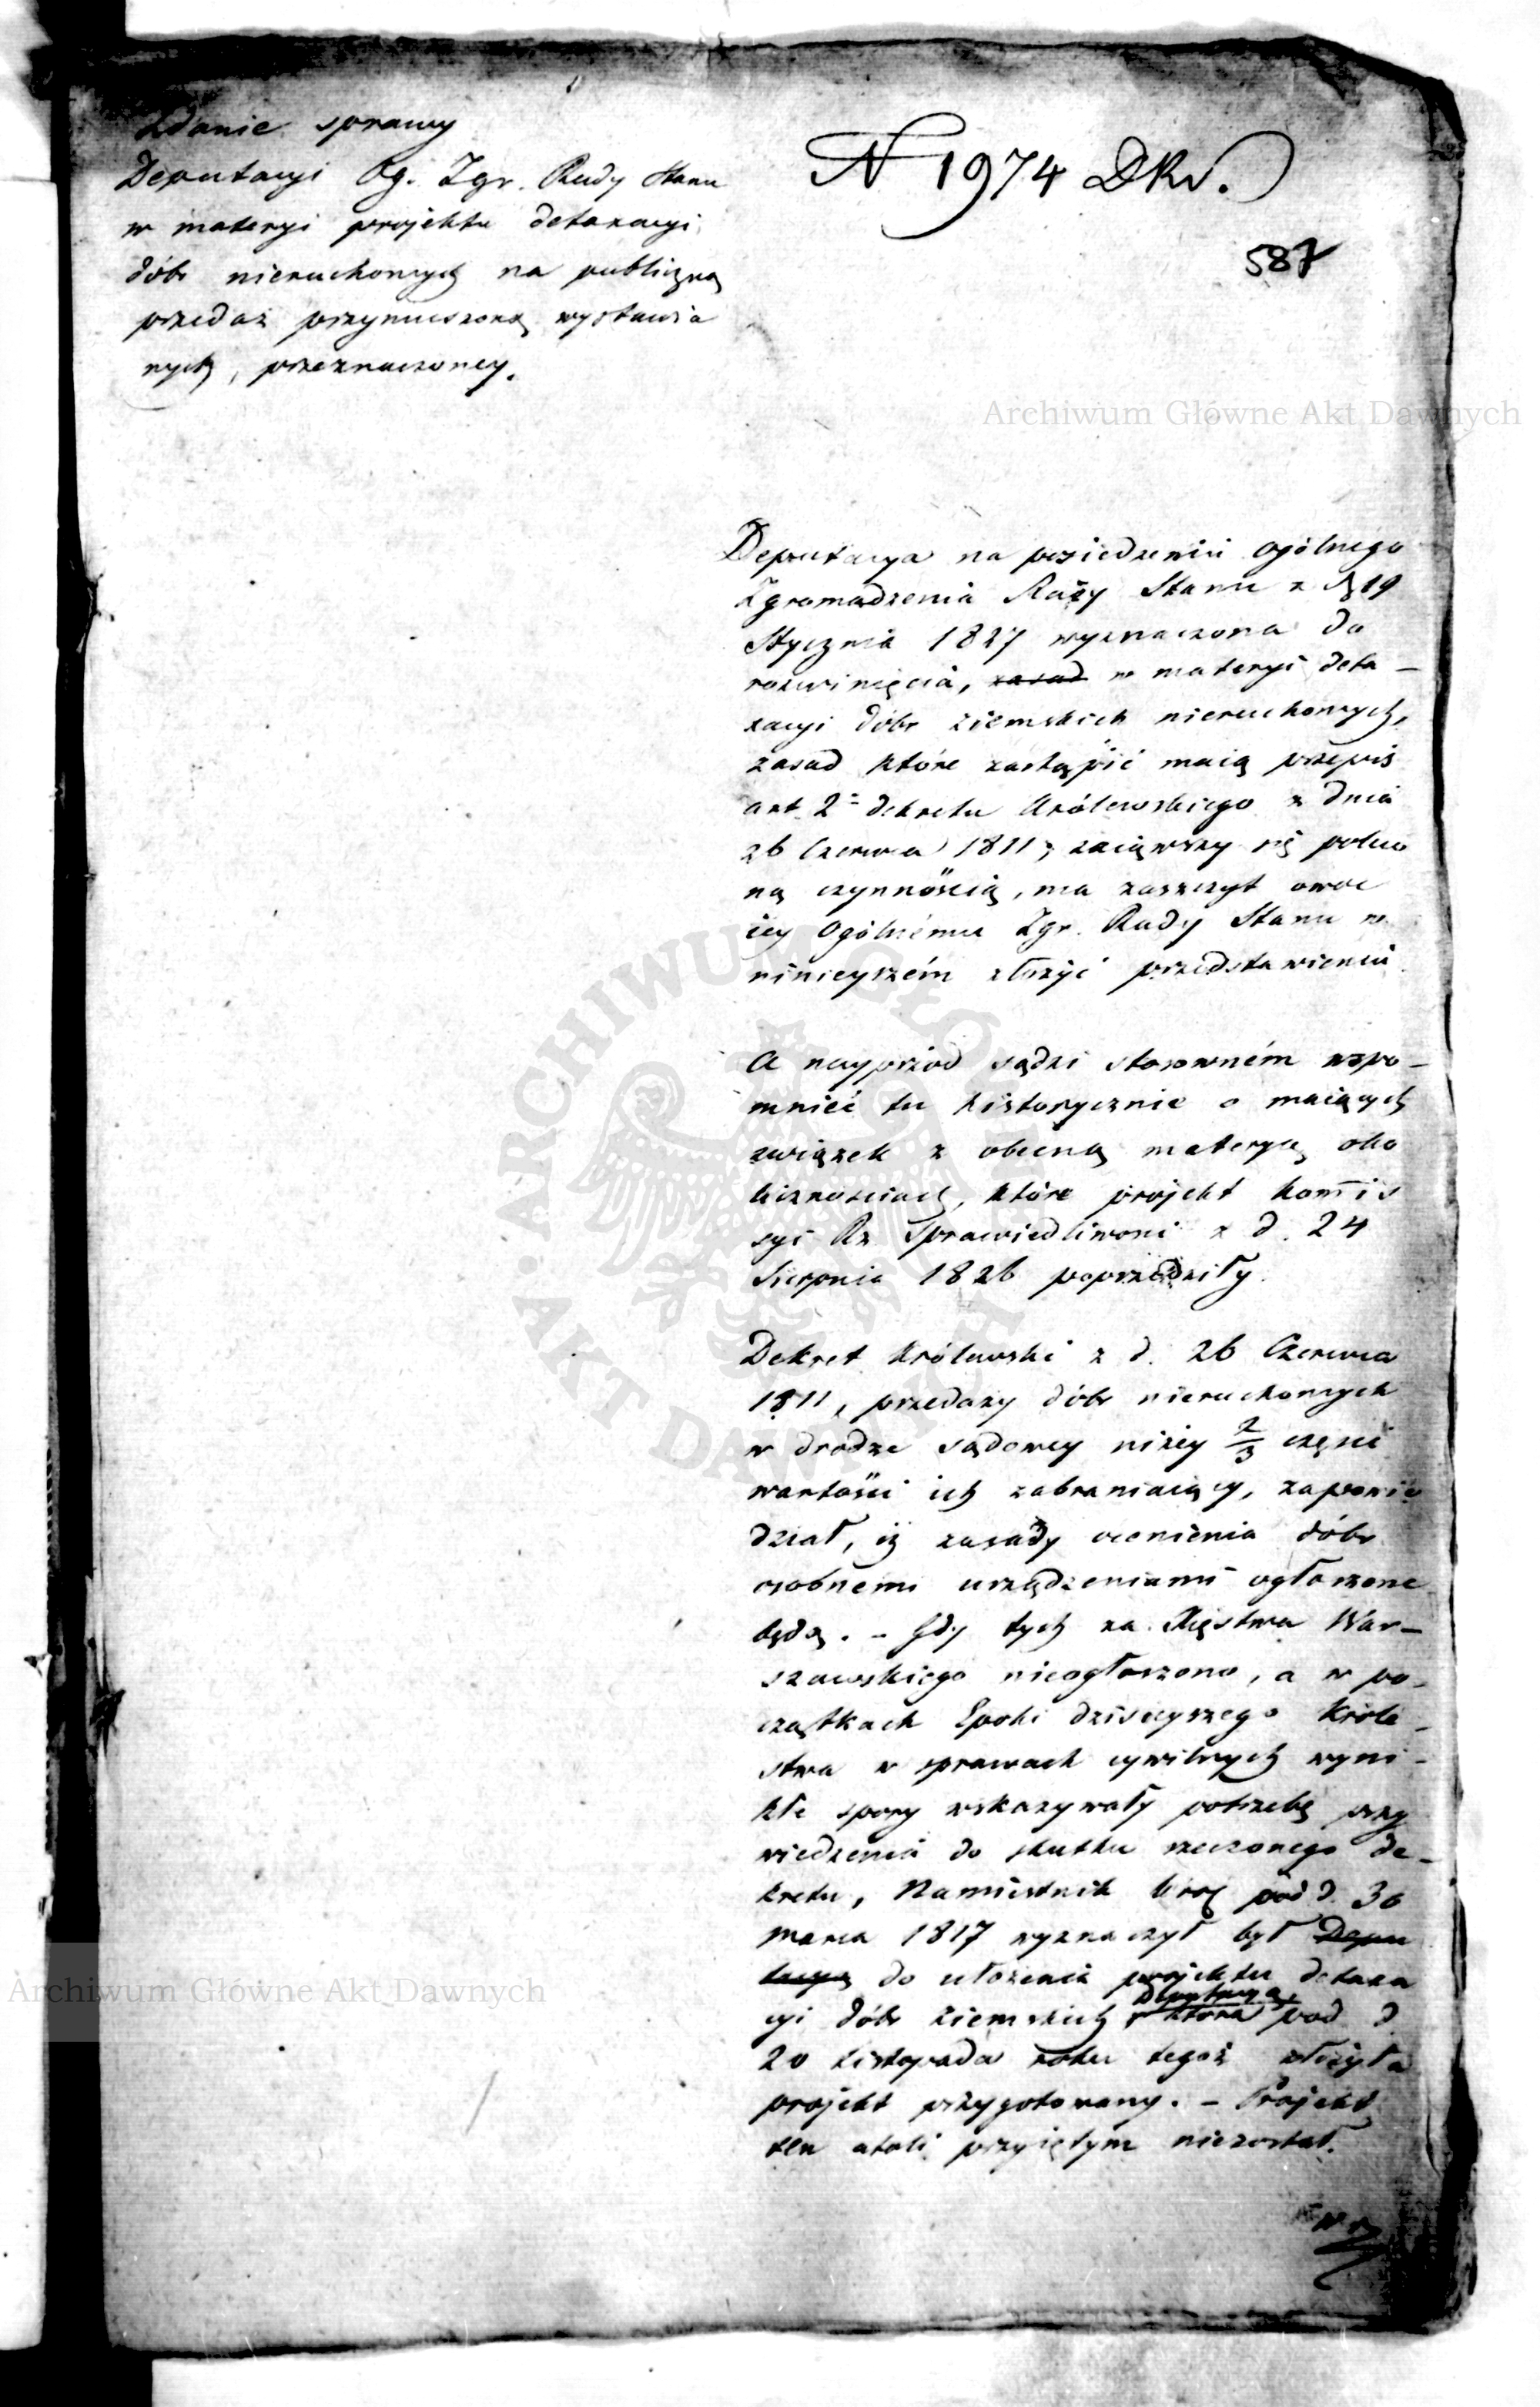 Zdanie sprawy
Deputacyi Og. Zgr. Rady Stanu
w materyi projektu detaxacyi
dóbr nieruchomych na publiczną
przedaż przymuszoną wystawia
nych, przeznaczoney.
N 1974 DKr.
587
Archiwum Główne Akt Dawnych
Deputacya na posiedzeniu ogólnego
Zgromadzenia Rady Stanu z d. 19
Stycznia 1827 wyznaczona do
rozwinięcia, zasad w materyi deta-
xacyi dóbr ziemskich nieruchomych,
zasad które zastąpić maią przepis
art. 2 dekretu Królewskiego z dnia
26 Czerwca 1811; zaiąwszy się poleco
ną czynnością, ma zaszczyt owoc
iey Ogólnému Zgr. Rady Stanu w
ninieyszém złożyć przedstawieniu
A nayprzód sądzi stosowném wspo-
mnieć tu historycznie o maiących
związek z obecną materyą oko
licznościach, które projekt Kommis
syi Rz. Sprawiedliwości z d. 24
Sierpnia 1826 poprzedziły.
Dekret Królewski z d. 26 Czerwca
1811, przedaży dóbr nieruchomych
w drodze sądowey niżey 2/3 części
wartości ich zabraniaiący, zapowie
dział, iż zasady ocenienia dóbr
osobnemi urządzeniami ogłoszone
będą. - Gdy tych za Xięstwa War-
szawskiego nieogłoszono, a w po-
czątkach Epoki dzisieyszego Króle-
stwa w sprawach cywilnych wyni-
kłe spory wskazywały potrzebę przy
wiedzenia do skutku rzeczonego de-
kretu, Namiestnik Król. pod d. 30
Marca 1817 wyznaczył był Depu
tacyą do ułożenia projektu detaxa
Deputacyą,
cyi dóbr ziemskich która pod d.
20 Listopada roku tegoż złożyła
projekt przygotowany. - Projekt
ten atoli przyiętym niezostał.
Archiwum Główne Akt Dawnych
ARCHIWUM GŁÓWNE AKT DAWNYCH